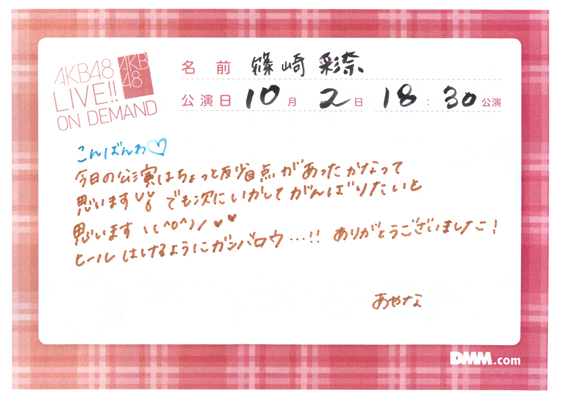 AKB48
LIVE!!
ON DEMAND
AKB
48
名前 篠崎 彩奈
公演日 10月 2日 18:30公演
こんばんわ♡
今日の公演はちょっと反省点があったかなって
思います でも次にいかしてがんばりたいと
思います ヽ(^o^)ノ♥♥
ヒールはけるようにガンバロウ…!! ありがとうございました!
あやな
DMM.com